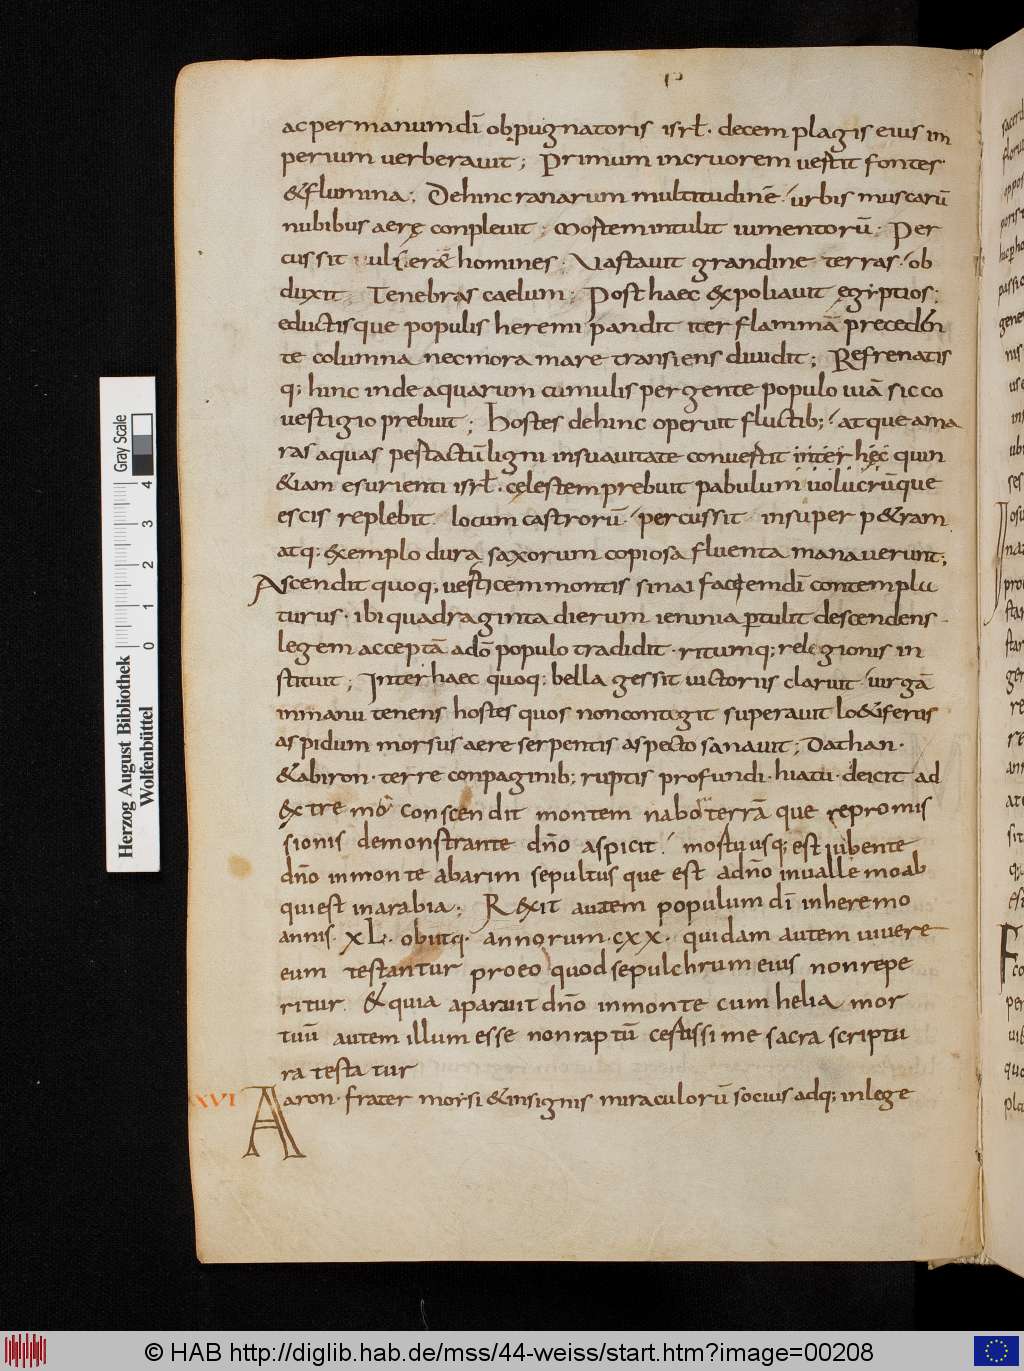 ac per manum dī obpugnatoris isrł. decem plagis eius im
perium uerberauit; Primum in cruorem uestit fontes.
& flumina; Dehinc ranarum multitudinē. urbis muscarū
nubibus aerę conpleuit; Mortem intulit iumentorū. Per
cussit homines. Uastauit grandine terras. ob
duxit Tenebras caelum; Post haec expoliauit ęgiptios;
eductisque populis heremi pandit iter flammā precedēn
te columna nec mora mare transiens diuidit; Refrenatis
q; hinc inde aquarum cumulis pergente populo uiā sicco
uestigio prebuit; hostes dehinc operuit fluctib; atque ama
ras aquas per tactū ligni in suauitate conuertit inter hęc quin
& iam esurienti isrł. cęlestem prebuit pabulum uolucrūque
escis replebit locum castrorū. percussit insuper p&ram
atq; exemplo dura saxorum copiosa fluenta manauerunt;
Ascendit quoq; uerticem montis sinai faciem dī contemplu
turus. ibi quadraginta dierum ieiunia ptulit descendens
legem acceptā a dō populo tradidit. ritumq; relegionis in
stituit; Inter haec quoq; bella gessit uictoriis claruit uirgā
in manu tenens hostes quos non contigit superauit lo&iferus
aspidum morsus aere serpentis aspecto sanauit; Dathan.
& abiron. terre conpaginib; ruptis profundi. hiatu. deicit ad
extremō conscendit montem nabo terrā que repromis
sionis demonstrante dn̄o aspicit. mortuusq; est iubente
dn̄o in monte abarim sepultus que est a dn̄o in ualle moab
qui est in arabia; Rexit autem populum dī in heremo
annis. XL. obiitq. annorum. cxx. quidam autem uiuere
eum testantur pro eo quod sepulchrum eius non repe
ritur & quia aparuit dn̄o in monte cum helia mor
tuū autem illum esse non raptū certissime sacra scriptu
ra testatur
XVI Aaron. frater morsi & insignis miraculorū socius adq; in lege
Herzog August Bibliothek
Wolfenbüttel
Gray Scale
0 1 2 3 4
© HAB http://diglib.hab.de/mss/44-weiss/start.htm?image=00208